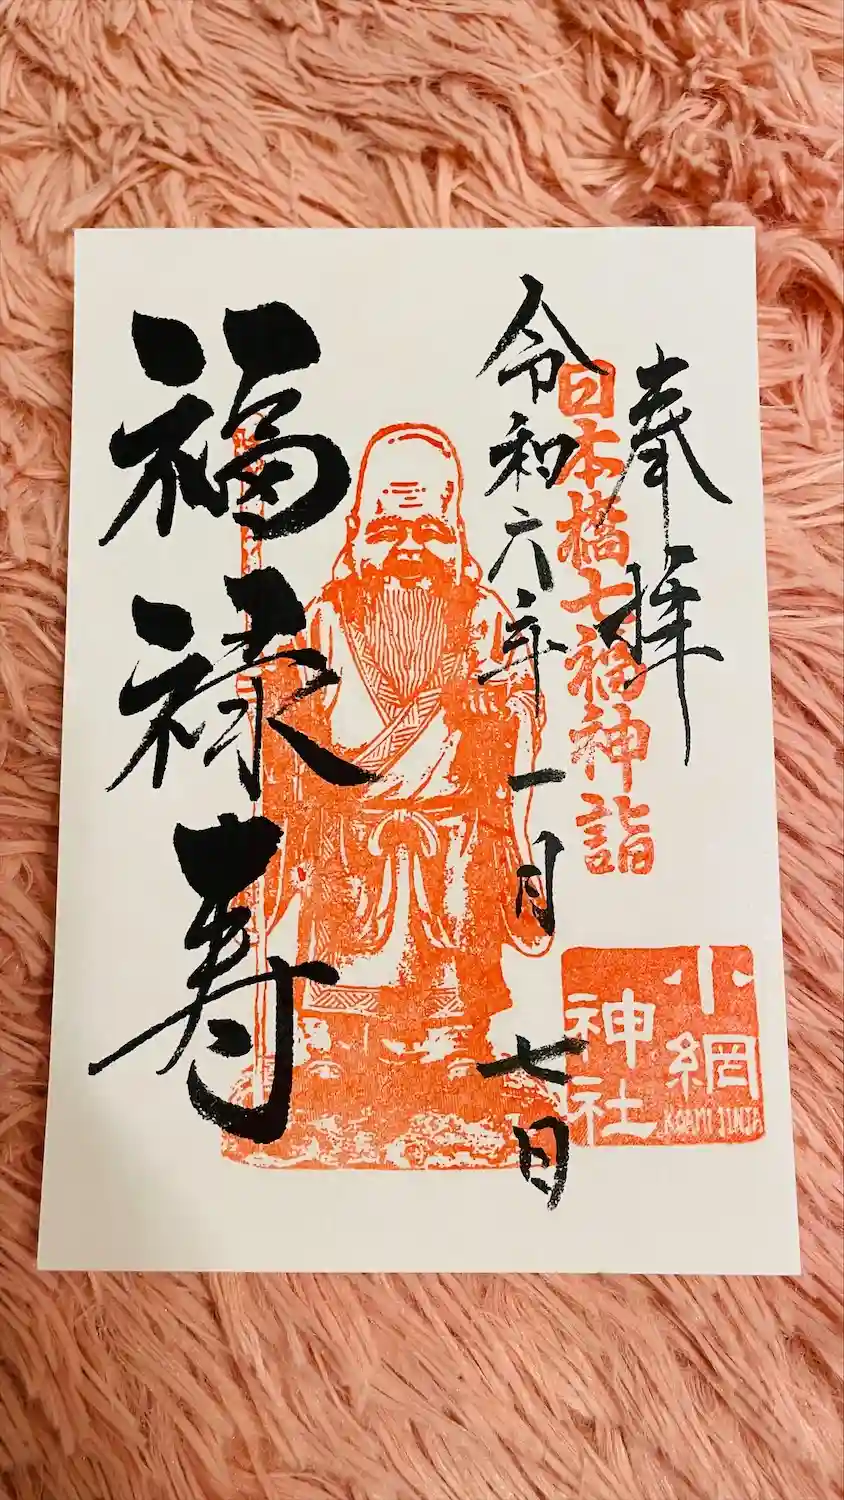 奉拝
日本橋七福神詣
令和六年一月七日
福禄寿
小網
神社
KOAMI JINJA